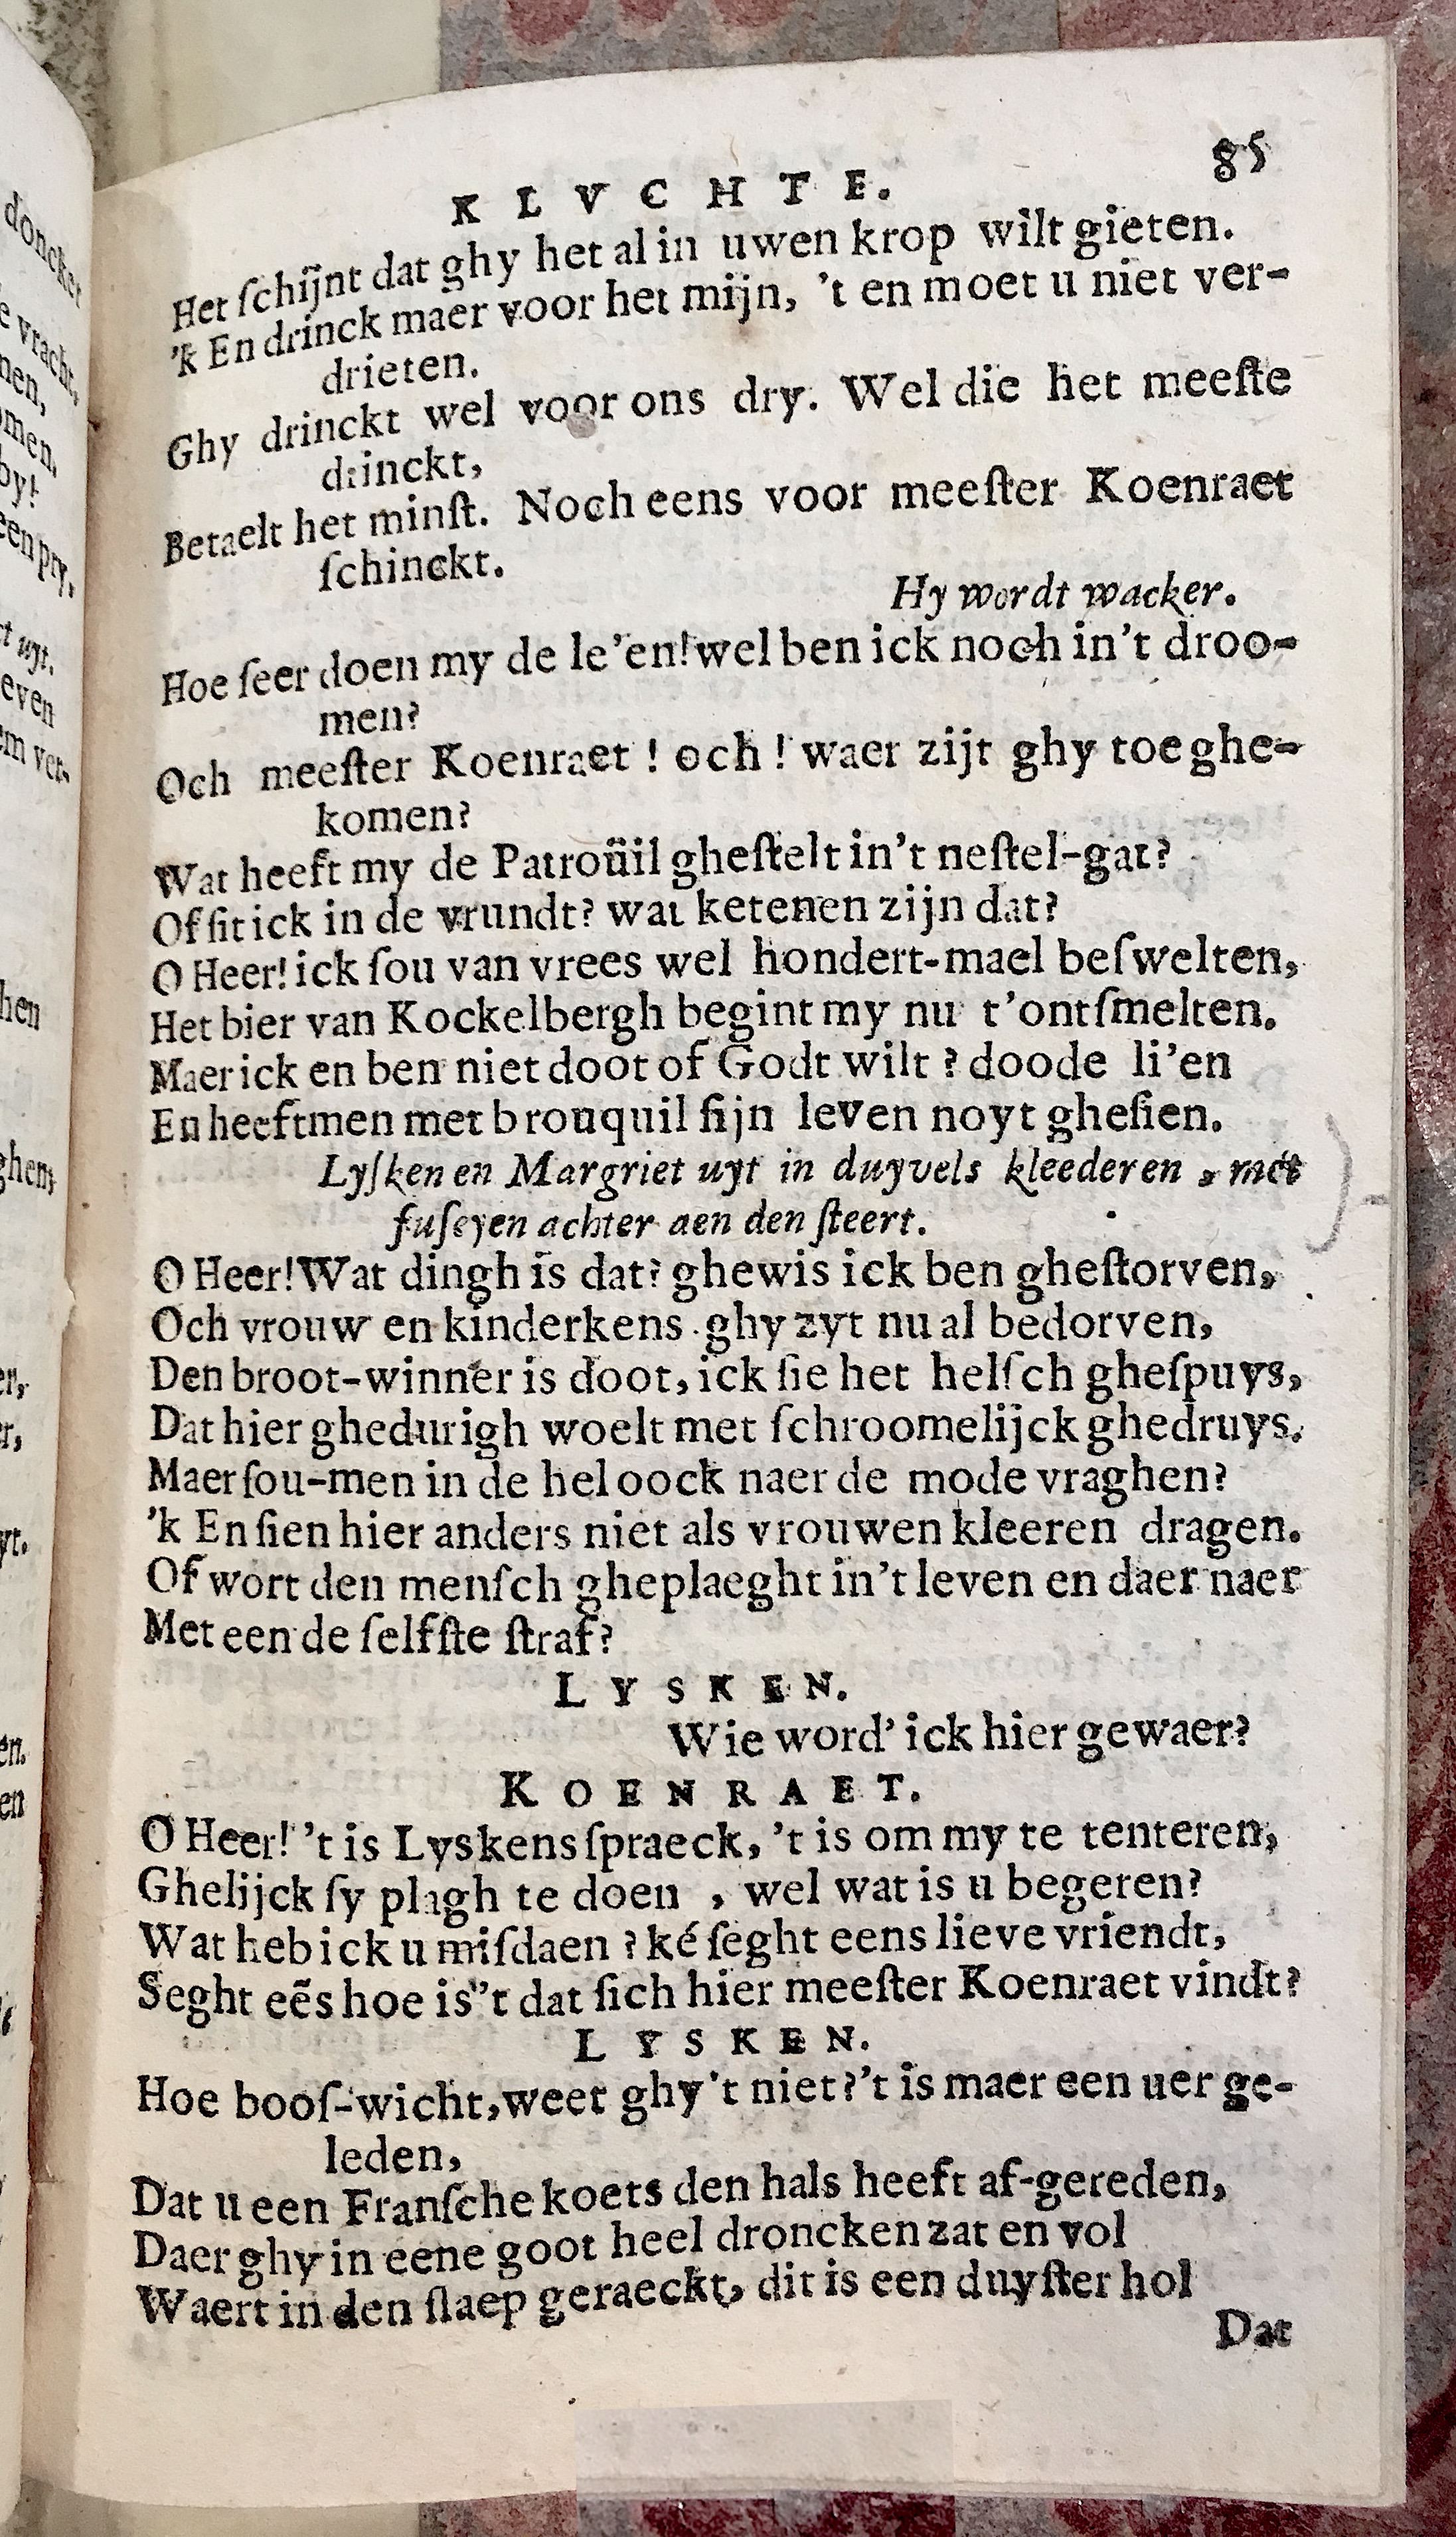 doncket
e vracht,
nen,
omen.
by!
een pry.
t uyt.
even
em ver-
hen
ghen,
er,
r,
yt.
en.
en
85
KLVCHTE.
Het ſchijnt dat ghy het al in uwen krop wilt gieten.
'k En drinck maer voor het mijn, 't en moet u niet ver-
drieten.
Ghy drinckt wel voor ons dry. Wel die het meeſte
drinckt,
Betaelt het minſt. Noch eens voor meeſter Koenraet
ſchinckt.
Hy wordt wacker.
Hoe ſeer doen my de le'en! wel ben ick noch in't droo-
men?
Och meeſter Koenraet ! och ! waer zijt ghy toe ghe-
komen?
Wat heeft my de Patroüil gheſtelt in't neſtel-gat?
Of ſit ick in de vrundt? wat ketenen zijn dat?
O Heer! ick ſou van vrees wel hondert-mael beſwelten,
Het bier van Kockelbergh begint my nu t'ontſmelten.
Maer ick en ben niet doot of Godt wilt ? doode li'en
En heeftmen met brouquil ſijn leven noyt gheſien.
Lyſken en Margriet uyt in duyvels kleederen , met
fuſeyen achter aen den ſteert.
O Heer! Wat dingh is dat? ghewis ick ben gheſtorven,
Och vrouw en kinderkens ghy zyt nu al bedorven,
Den broot-winner is doot, ick ſie het helſch gheſpuys,
Dat hier ghedurigh woelt met ſchroomelijck ghedruys.
Maer ſou-men in de hel oock naer de mode vraghen?
'k En ſien hier anders niet als vrouwen kleeren dragen.
Of wort den menſch gheplaeght in't leven en daer naer
Met een de ſelfſte ſtraf?
LYSKEN.
Wie word' ick hier gewaer?
KOENRAET.
O Heer! 't is Lyskens ſpraeck, 't is om my te tenteren,
Ghelijck ſy plagh te doen , wel wat is u begeren?
Wat heb ick u miſdaen ? ké ſeght eens lieve vriendt,
Seght eẽs hoe is''t dat ſich hier meeſter Koenraet vindt?
LYSKEN.
Hoe booſ-wicht, weet ghy 't niet? 't is maer een uer ge-
leden,
Dat u een Franſche koets den hals heeft af-gereden,
Daer ghy in eene goot heel droncken zat en vol
Waert in den ſlaep geraeckt, dit is een duyſter hol
Dat